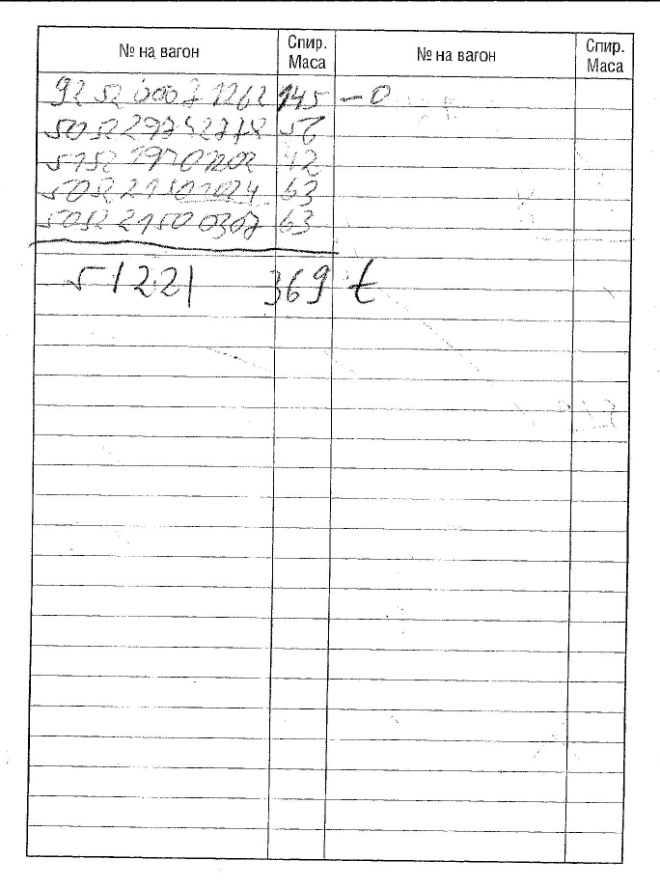 № на вагон Спир. Маса № на вагон Спир. Маса
92 52 0007 1262 145 – 0
5052 2974 2778 56
5152 1940 1202 42
5052 2150 1024 63
5052 2150 0307 63
5/22/ 369 t